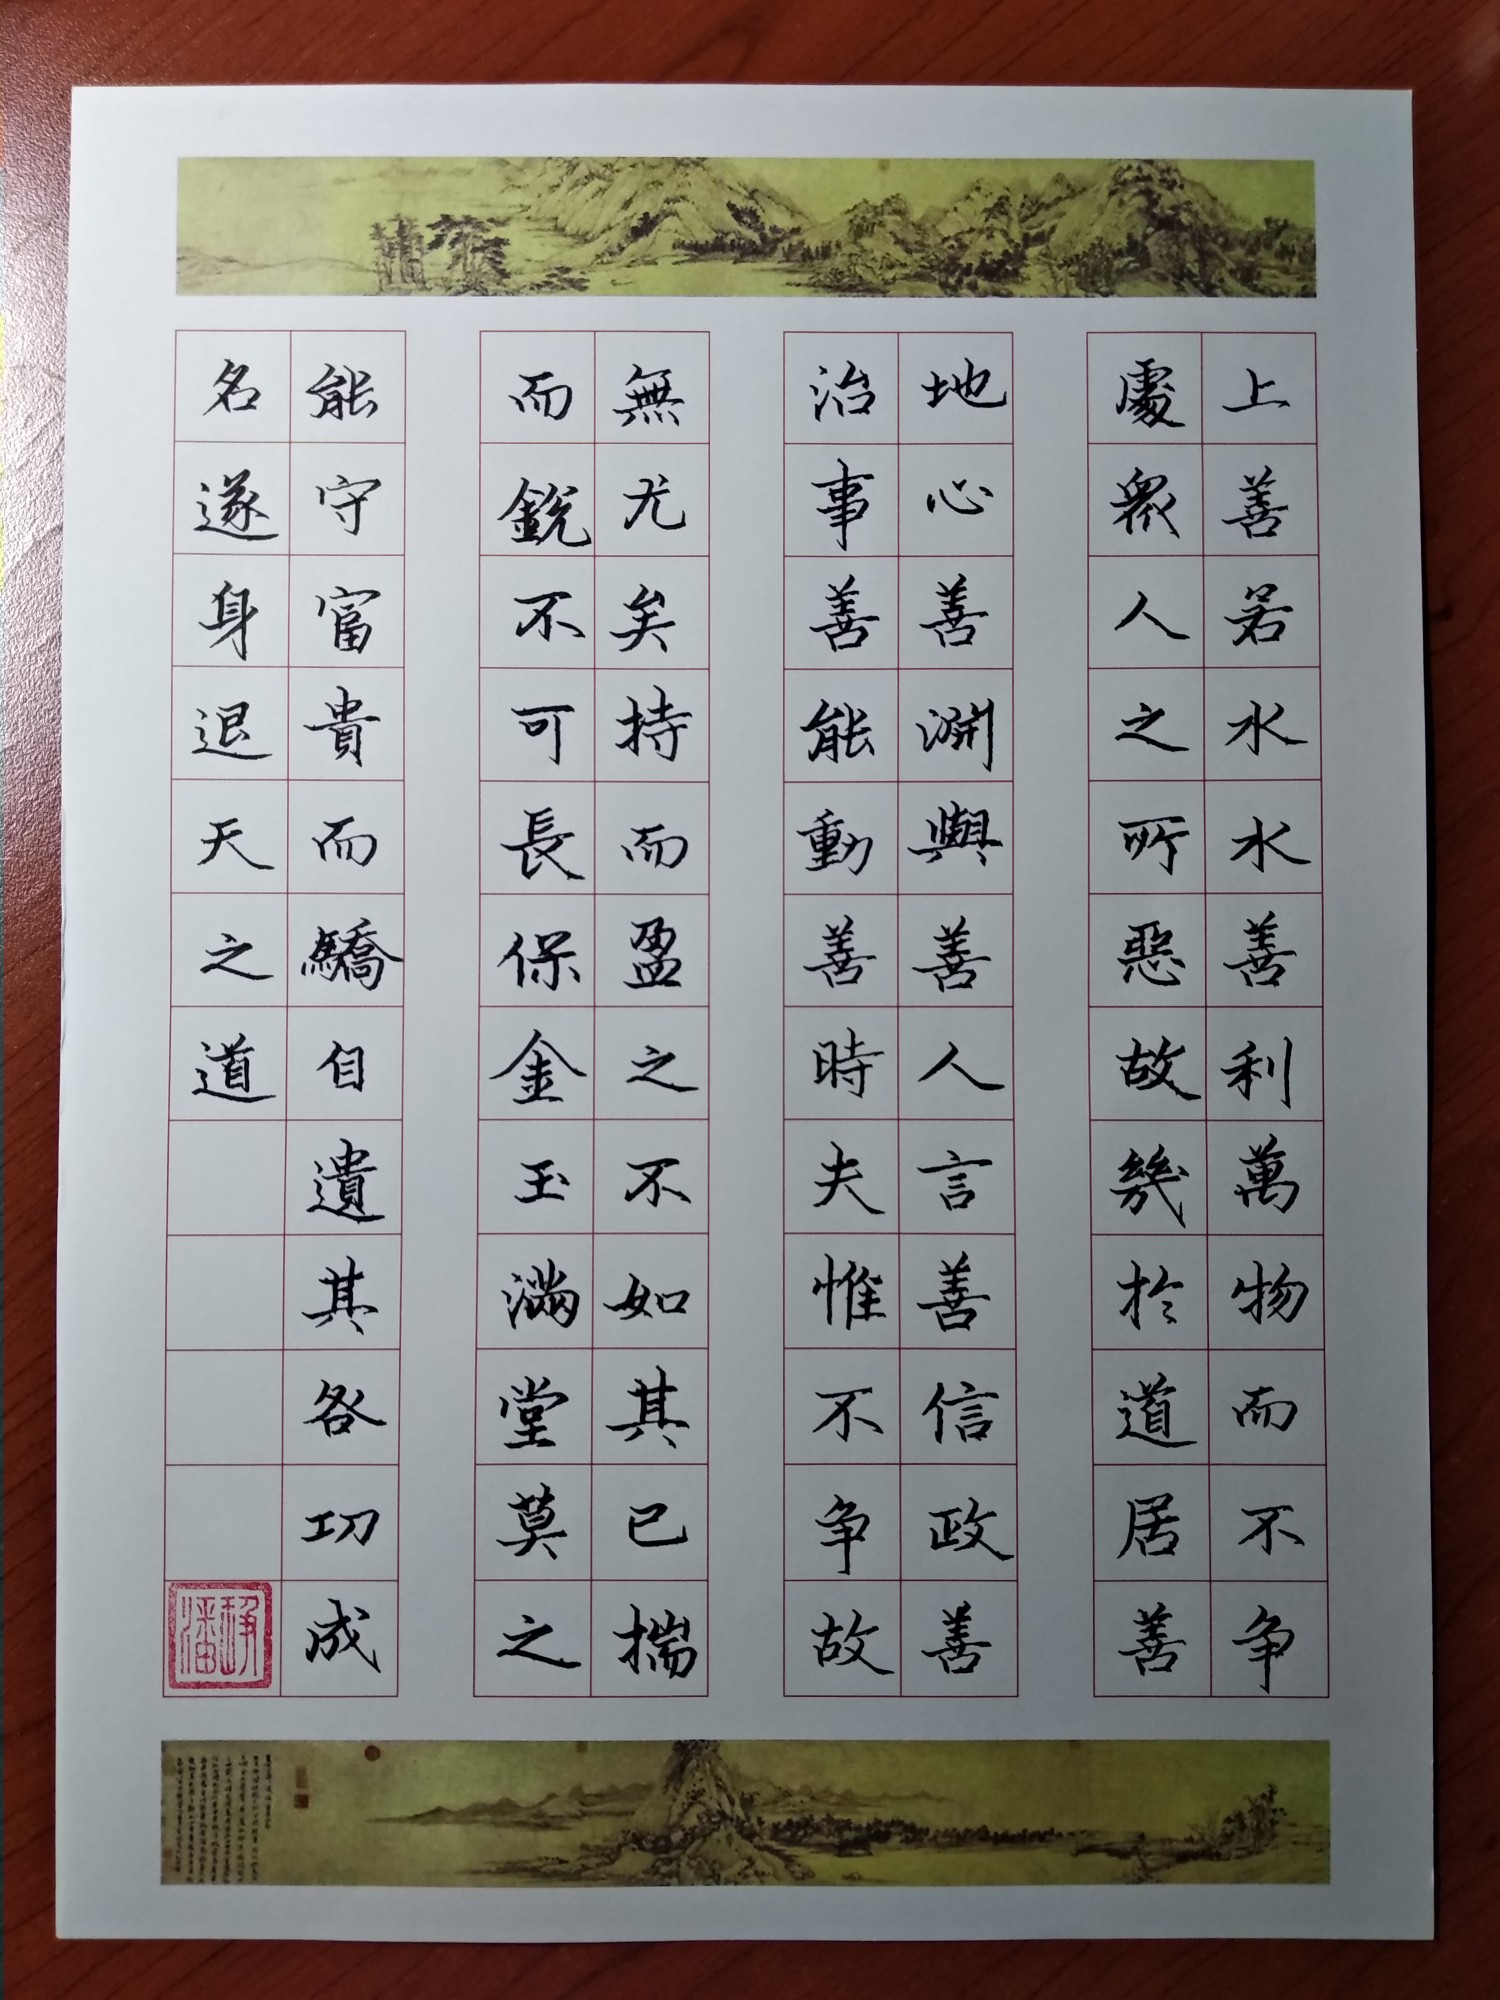 上善若水水善利萬物而不争
處衆人之所惡故幾於道居善
地心善淵與善人言善信政善
治事善能動善時夫惟不争故
無尤矣持而盈之不如其已揣
而銳不可長保金玉滿堂莫之
能守富貴而驕自遺其咎功成
名遂身退天之道